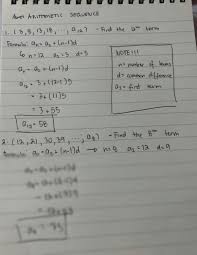 ARITHMETIC SEQUENCE
1. (3, 8, 13, 18, ..., a₁₂) - Find the 12th term
Formula: aₙ = a₁ + (n-1)d
n = 12 a₁ = 3 d = 5
aₙ = a₁ + (n-1)d
a₁₂ = 3 + (12-1)5
= 3 + (11)5
= 3 + 55
a₁₂ = 58
NOTE!!!
n = number of terms
d = common difference
a₁ = first term
2. (12, 21, 30, 39, ..., a₈) - Find the 8th term
formula: aₙ = a₁ + (n-1)d → n = 8 a₁ = 12 d = 9
aₙ = a₁ + (n-1)d